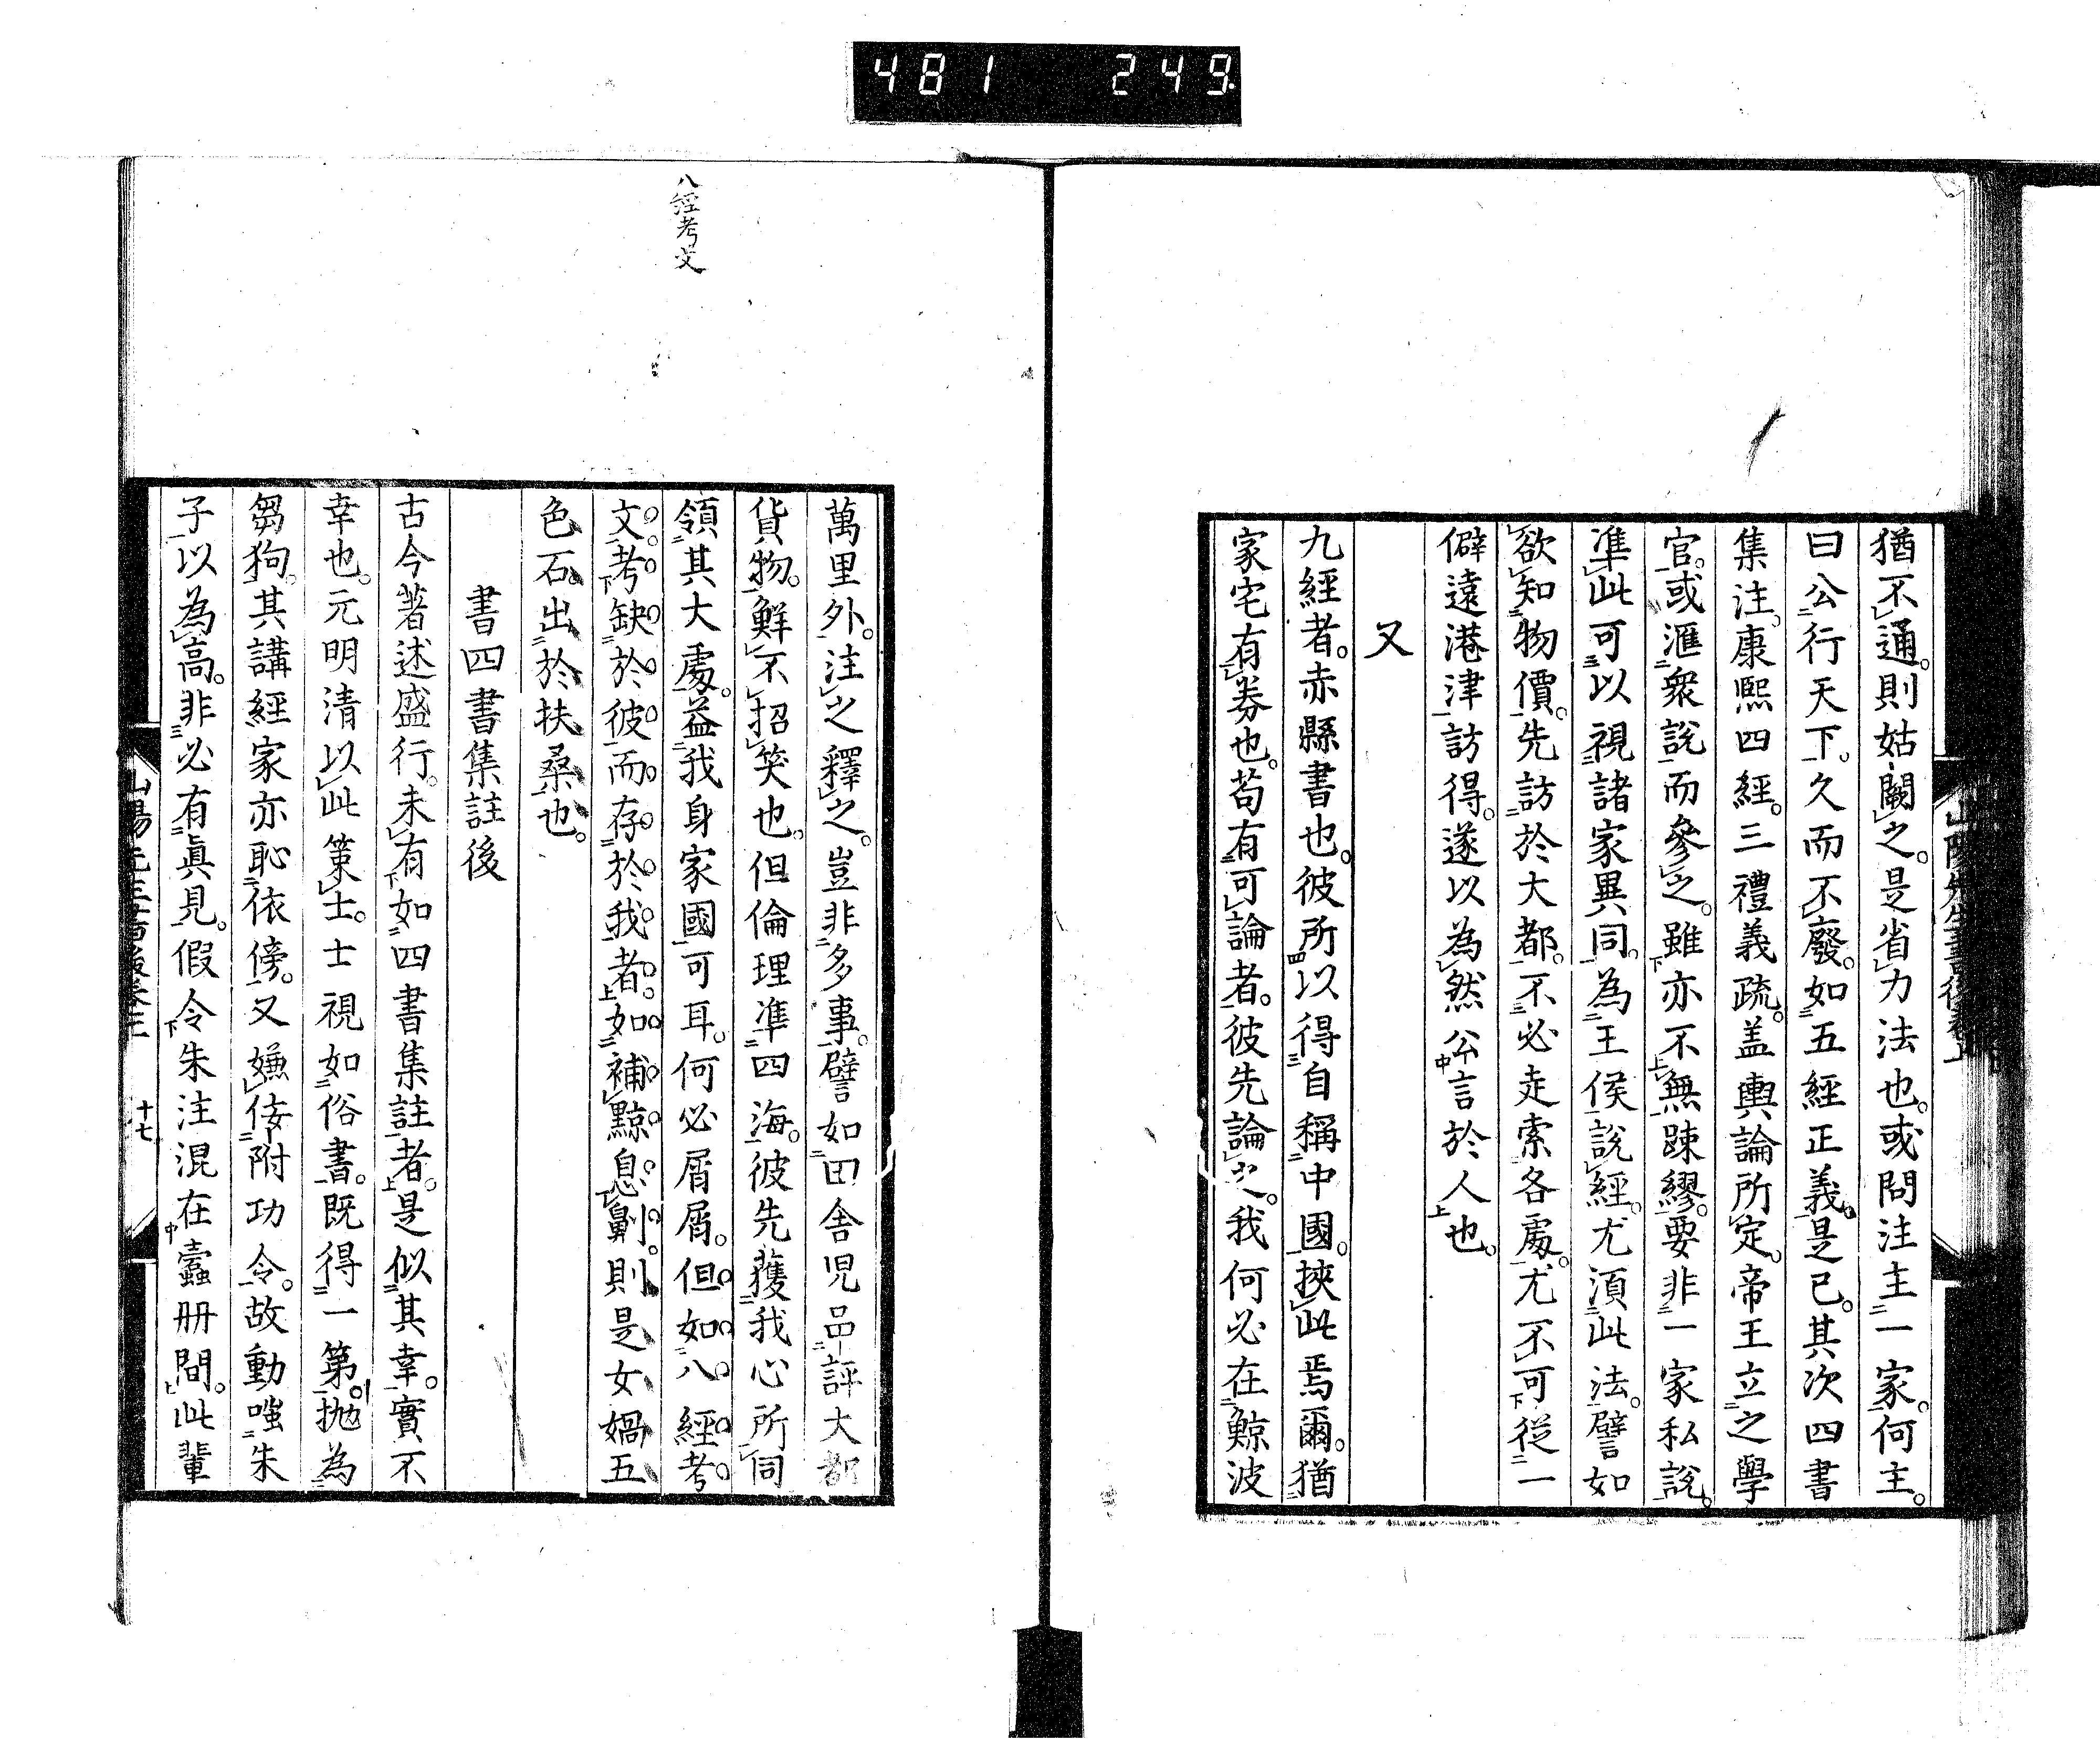 481 249
猶不通。則姑闕之。是省力法也。或問注主一家。何主。
曰公行天下。久而不廢。如五經正義。是已。其次四書
集注。康熙四經。三禮義疏。盖輿論所定。帝王立之學
官。或滙衆說而參之。雖亦不無踈繆。要非一家私說。
準此可以視諸家異同。為王侯說經。尤須此法。譬如
欲知物價。先訪於大都。不必走索各處。尤不可從一
僻遠港津訪得。遂以為然公言於人也。
又
九經者。赤縣書也。彼所以得自稱中國。挾此焉爾。猶
家宅有券也。苟有可論者。彼先論之。我何必在鯨波
八經考文
萬里外。注之釋之。豈非多事。譬如田舍児品評大都
貨物。鮮不招笑也。但倫理準四海。彼先獲我心所同
領其大處。益我身家國可耳。何必屑屑。但如八經考
文。考缺於彼。而存於我者。如補黥息劓。則是女媧五
色石。出於扶桑也。
書四書集註後
古今著述盛行。未有如四書集註者。是似其幸。實不
幸也。元明清以此策士。士視如俗書。既得一第。抛為
芻狗。其講經家亦恥依傍。又嫌侫附功令。故動嗤朱
子以為高。非必有眞見。假令朱注混在蠹册間。此輩
十七